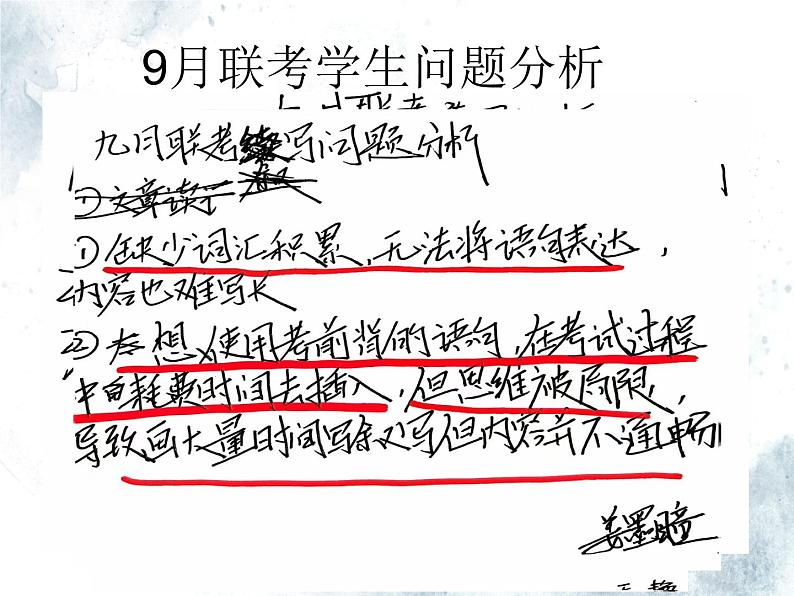 9月联考学生问题分析
九月联考续写问题分析
①文章读了
①缺少词汇积累，无法将语句表达，
内容也难写长
②太想使用考前背的语句，在考试过程
中白耗费时间去插入，但思维被局限，
导致画大量时间写涂又写但内容并不通畅